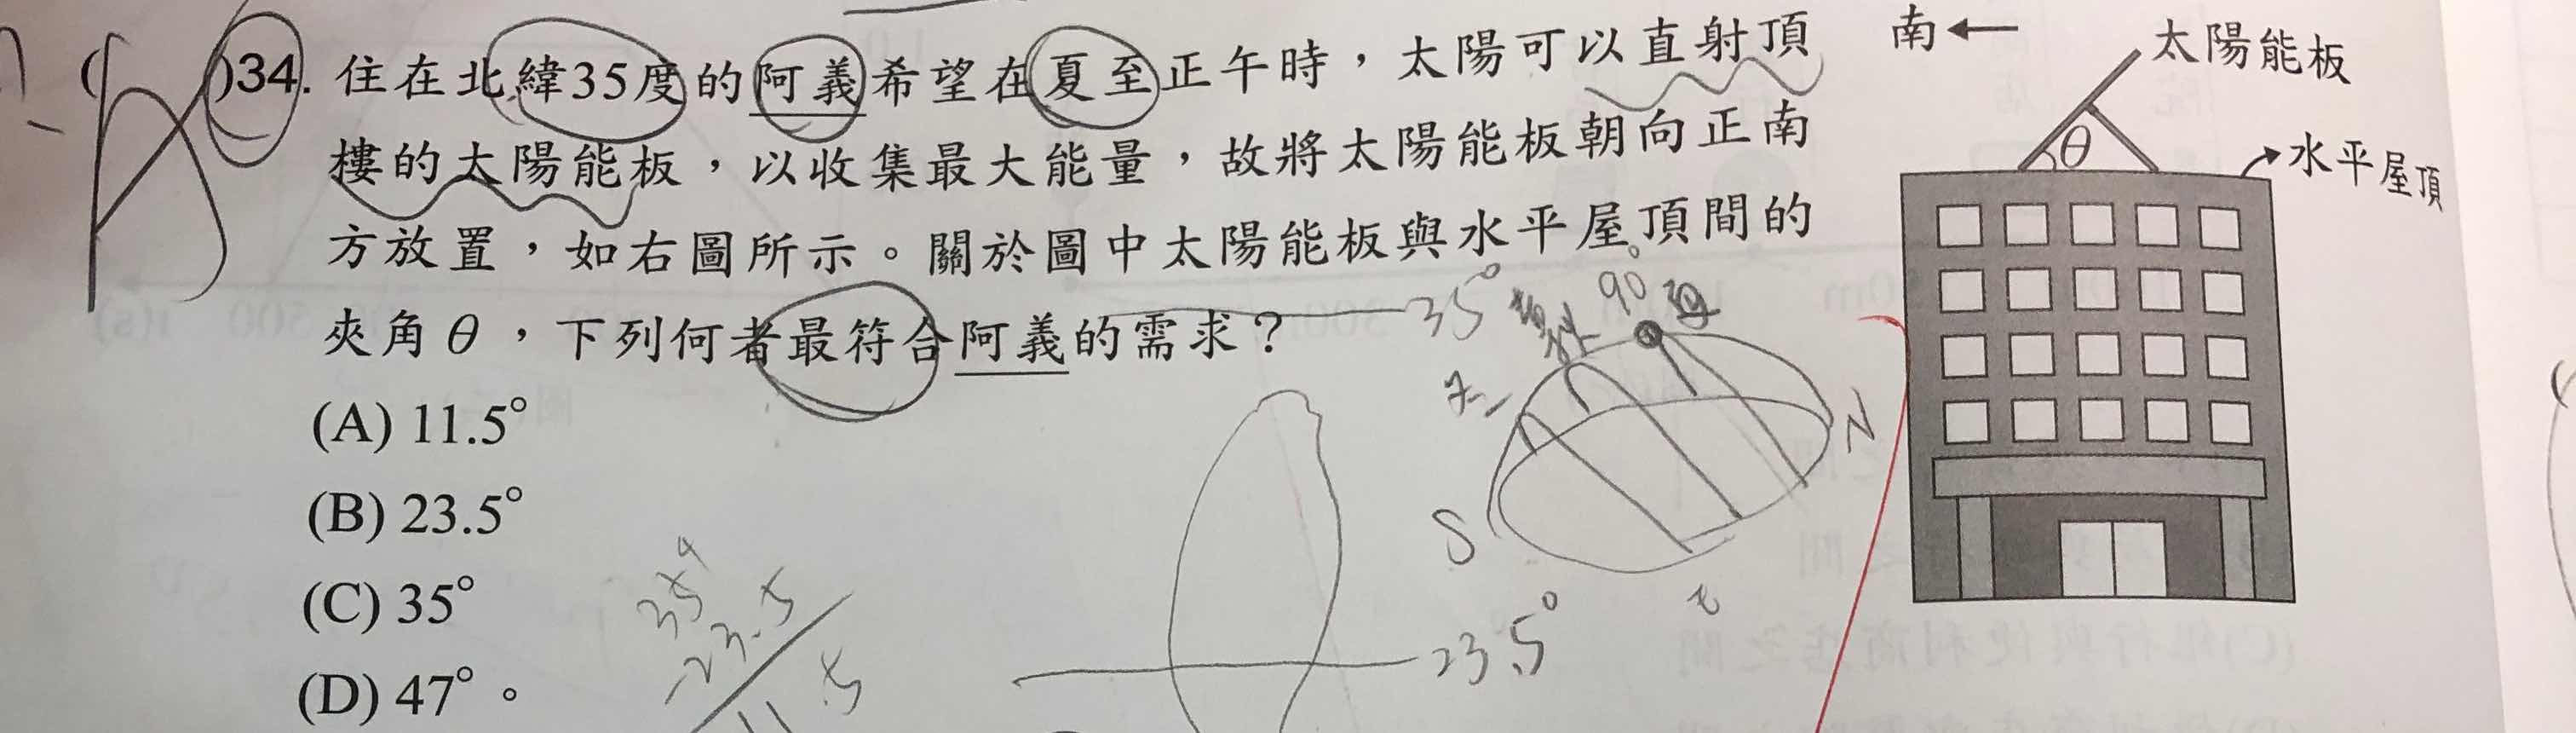 南←
太陽能板
( )34. 住在北緯35度的阿義希望在夏至正午時，太陽可以直射頂
樓的太陽能板，以收集最大能量，故將太陽能板朝向正南
方放置，如右圖所示。關於圖中太陽能板與水平屋頂間的
夾角θ，下列何者最符合阿義的需求？
(A) 11.5°
(B) 23.5°
(C) 35°
(D) 47°。
θ
水平屋頂
35°
90°
N
S
23.5°
35
-23.5
11.5